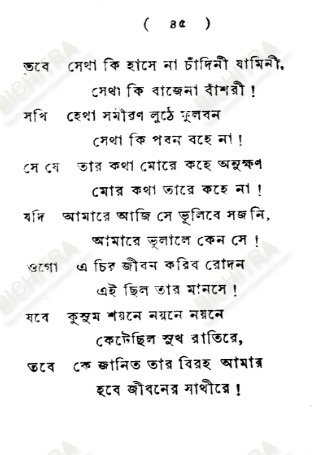 ( ৪৫ )
তবে সেথা কি হাসে না চাঁদিনী যামিনী,
সেথা কি বাজেনা বাঁশরী !
সখি হেথা সমীরণ লুঠে ফুলবন
সেথা কি পবন বহে না !
সে যে তার কথা মোরে কহে অনুক্ষণ
মোর কথা তারে কহে না !
যদি আমারে আজি সে ভুলিবে সজনি,
আমারে ভুলালে কেন সে !
ওগো এ চির জীবন করিব রোদন
এই ছিল তার মানসে !
যবে কুসুম শয়নে নয়নে নয়নে
কেটেছিল সুখ রাতিরে,
তবে কে জানিত তার বিরহ আমার
হবে জীবনের সাথীরে !
BICHITRA